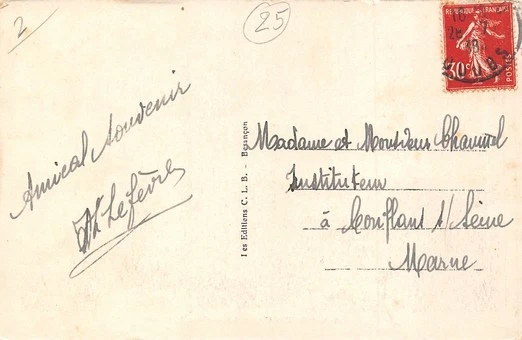 2
25
RÉPUBLIQUE FRANÇAISE
30c
POSTES
Amical Souvenir
Lefèvre
Les Editions C. L. B. - Besançon
Madame et Monsieur
Instituteur
à Conflans s/ Seine
Marne